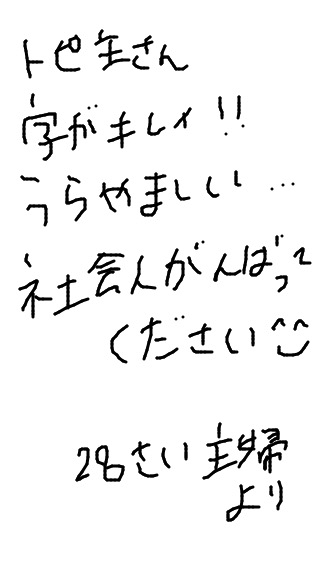 トピ主さん
字がキレイ!!
うらやましい…
社会人がんばって
ください^^
28さい主婦
より